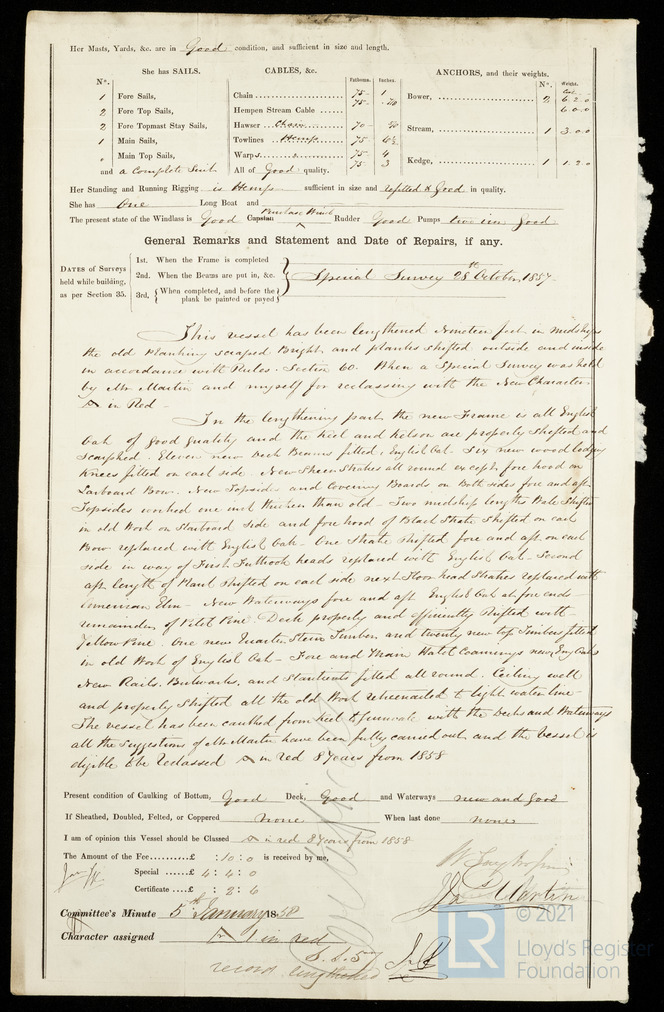 Her Masts, Yards, &c. are in Good condition, and sufficient in size and length.
She has SAILS. CABLES, &c. Fathoms. Inches. ANCHORS, and their weights.
N°. N°. Weight. Cwt.
1 Fore Sails, Chain 75 1 Bower, 2 6 2 0
2 Fore Top Sails, Hempen Stream Cable 75 6 0 0
2 Fore Topmast Stay Sails, Hawser Chain 70 Stream, 1 3 0 0
1 Main Sails, Towlines Hemp 75 4½
" Main Top Sails, Warps 75 4 Kedge, 1 1 2 0
and a Complete Suit All of Good quality. 75 3
Her Standing and Running Rigging is Hemp sufficient in size and refitted & Good in quality.
She has One Long Boat and
The present state of the Windlass is Good Capstan Purchase Winch Rudder Good Pumps two in good
General Remarks and Statement and Date of Repairs, if any.
DATES of Surveys held while building, as per Section 35.
1st. When the Frame is completed
2nd. When the Beams are put in, &c.
3rd. When completed, and before the plank be painted or payed
Special Survey 28th October, 1857
This vessel has been lengthened Nineteen feet in midships
the old Planking scraped Bright, and planks shifted outside and inside
in accordance with Rules. Section 60. When a Special Survey was held
by Mr Martin and myself for reclassing with the New Character
A in Red
In the lengthening part the new Frame is all English
Oak of Good quality and the Keel and Kelson are properly Shifted and
Scarphed. Eleven new Deck Beams fitted, English Oak. Six new wood lodging
Knees fitted on each side. New Sheer Strakes all round except fore hood on
Larboard Bow. New Topsides and Covering Boards on Both sides fore and aft
Topsides worked one inch thicker than old - Two midship lengths Wale Shifted
in old Work on Starboard side and fore hood of Black Strake Shifted on each
Bow replaced with English Oak - One Strake Shifted fore and aft on each
side in way of First Futtock heads replaced with English Oak - Second
aft length of Plank Shifted on each side next Floor head Strakes replaced with
American Elm - New Waterways fore and aft English Oak at fore ends
remainder of Pitch Pine. Deck properly and efficiently Shifted with
Yellow Pine. One new Quarter Stern Timber and twenty new top Timbers fitted
in old Work of English Oak - Fore and Main Hatch Coamings new, Eng Oak
New Rails, Bulwarks, and Stanchions fitted all round. Ceiling well
and properly Shifted all the old Work retreenailed to light water line
The vessel has been caulked from keel to gunwale with the Decks and Waterways
all the Suggestions of Mr Martin have been fully carried out and the Vessel is
eligible to be reclassed A in red 8 Years from 1858
Present condition of Caulking of Bottom, Good Deck, Good and Waterways new and good
If Sheathed, Doubled, Felted, or Coppered None When last done none
I am of opinion this Vessel should be Classed A in red 8 Years from 1858
The Amount of the Fee £ : 10 : 0 is received by me,
Special £ 4 : 4 : 0
Certificate £ : 2 : 6
Jas Martin
Committee's Minute 5th January 1858
Character assigned A 1 in red
record lengthened
© 2021
LR
Lloyd's Register
Foundation